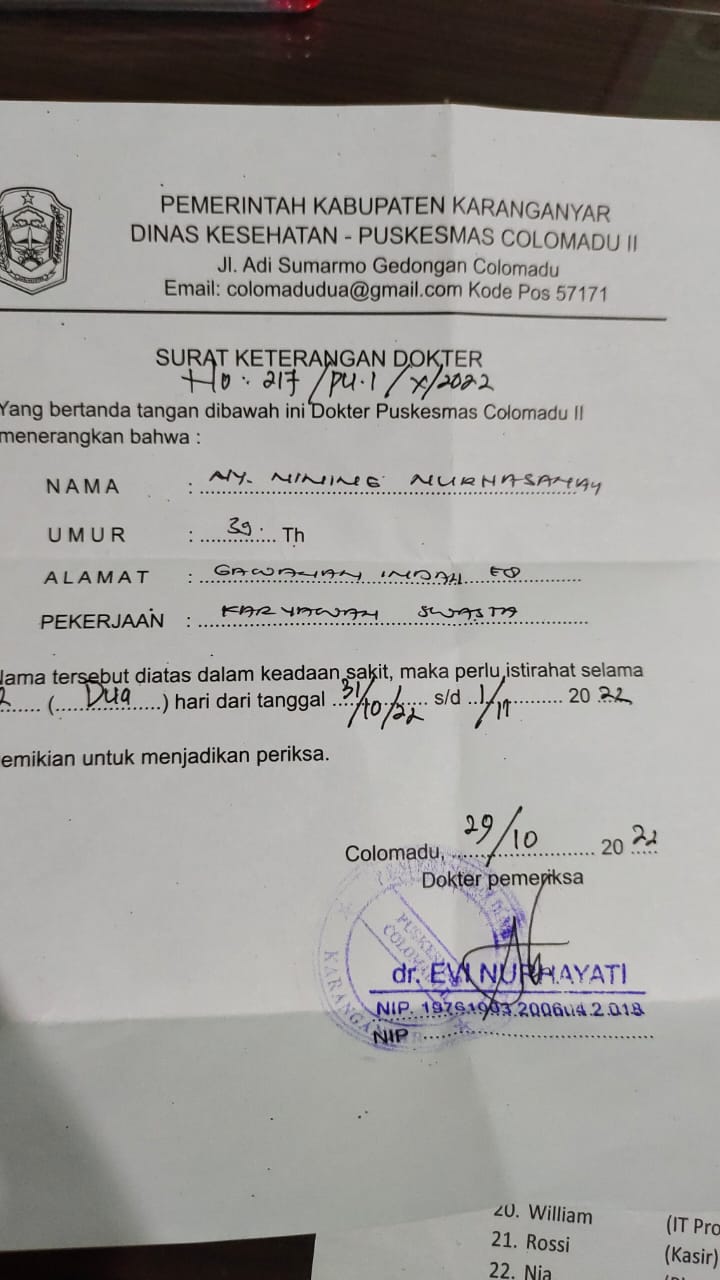 PEMERINTAH KABUPATEN KARANGANYAR
DINAS KESEHATAN - PUSKESMAS COLOMADU II
Jl. Adi Sumarmo Gedongan Colomadu
Email: colomadudua@gmail.com Kode Pos 57171
SURAT KETERANGAN DOKTER
No: 217/PU.1/X/2022
Yang bertanda tangan dibawah ini Dokter Puskesmas Colomadu II
menerangkan bahwa :
NAMA : NY. NINING NURHASANAH
UMUR : 39 Th
ALAMAT : GAWANAN INDAH
PEKERJAAN : KARYAWAN SWASTA
Nama tersebut diatas dalam keadaan sakit, maka perlu istirahat selama
2 (Dua) hari dari tanggal 31/10/22 s/d 1/11 2022
emikian untuk menjadikan periksa.
Colomadu, 29/10 2022
Dokter pemeriksa
PUSKESMAS
COLOMADU
KARANGANYAR
dr. EVI NURHAYATI
NIP.
NIP
20. William (IT Pro
21. Rossi (Kasir)
22. Nia